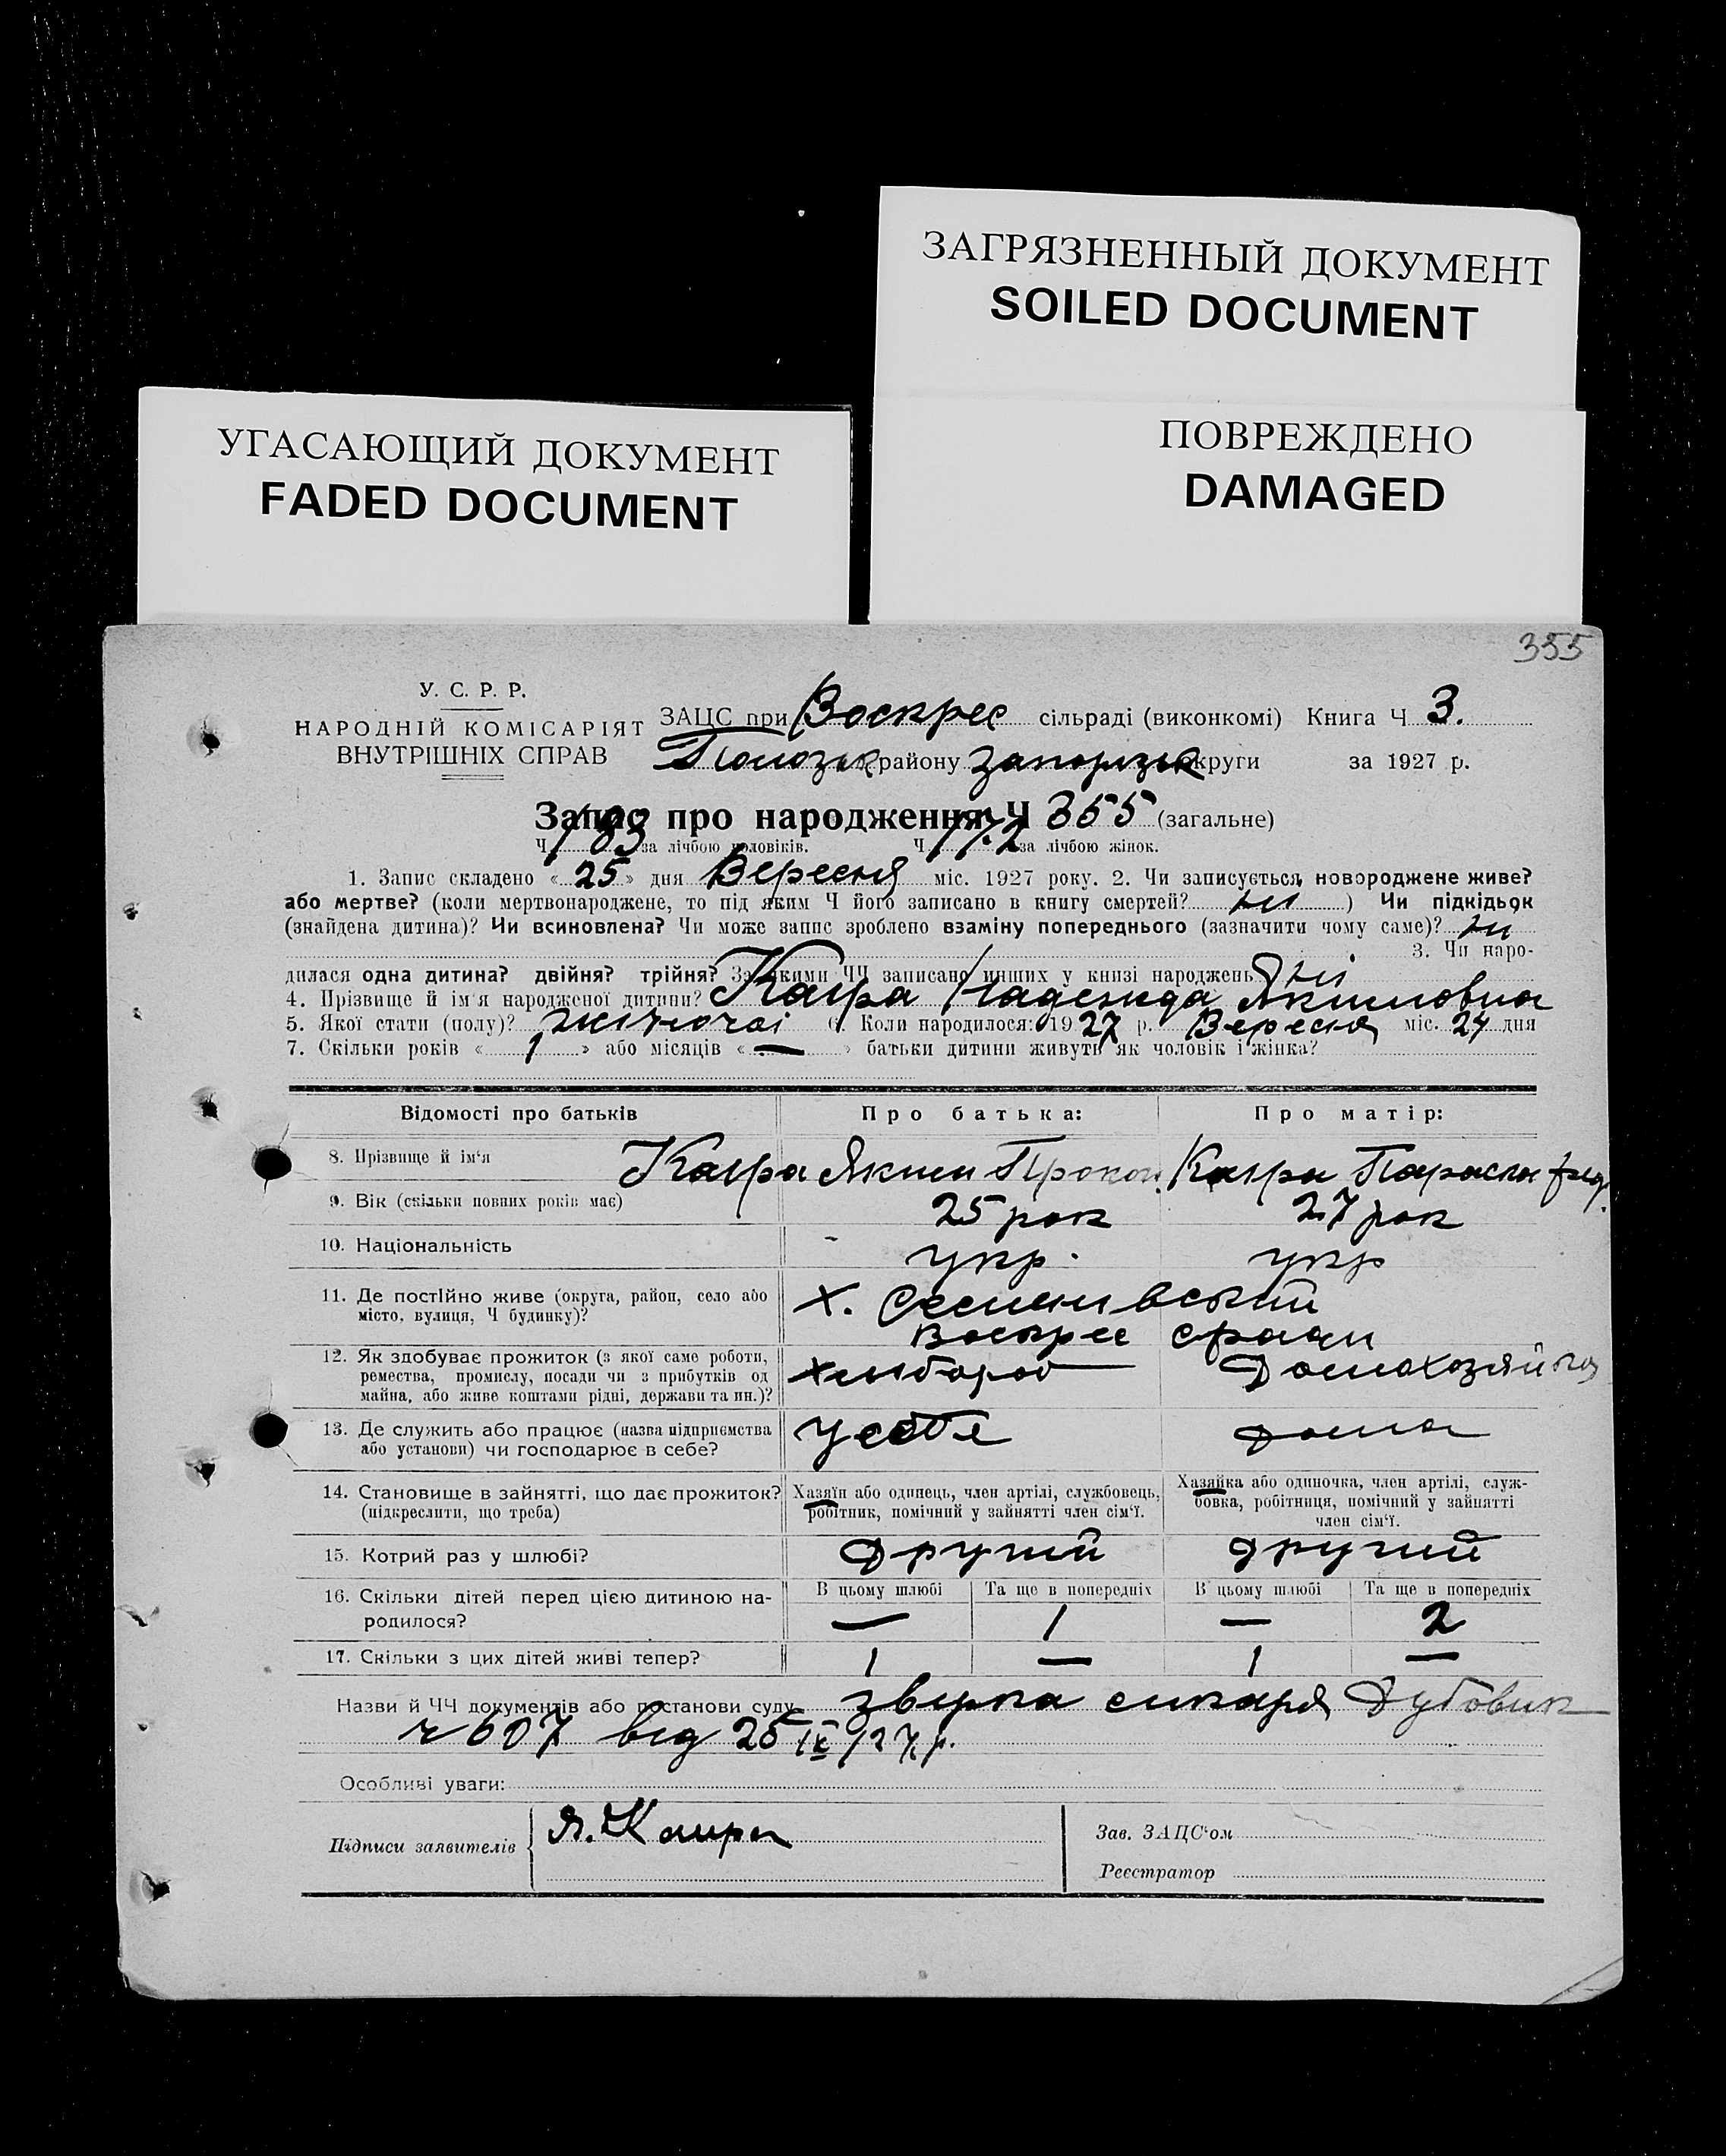 ЗАГРЯЗНЕННЫЙ ДОКУМЕНТ
SOILED DOCUMENT
УГАСАЮЩИЙ ДОКУМЕНТ
FADED DOCUMENT
ПОВРЕЖДЕНО
DAMAGED
355
У. С. Р. Р.
НАРОДНІЙ КОМІСАРІЯТ
ВНУТРІШНІХ СПРАВ
ЗАЦС при Воскрес сільраді (виконкомі) Книга Ч 3.
Пологзьк району Запорізьк округи за 1927 р.
Запис про народження Ч 355 (загальне)
Ч 183 за лічбою чоловіків. Ч 172 за лічбою жінок.
1. Запис складено « 25 » дня Вересня міс. 1927 року. 2. Чи записується новороджене живе?
або мертве? (коли мертвонароджене, то під яким Ч його записано в книгу смертей? ні ) Чи підкідьок
(знайдена дитина)? Чи всиновлена? Чи може запис зроблено взаміну попереднього (зазначити чому саме)? ні
3. Чи наро-
дилася одна дитина? двійня? трійня? За якими ЧЧ записано инших у книзі народжень ні
4. Прізвище й ім'я народженої дитини? Каира Надежда Якимовна
5. Якої стати (полу)? жіночаі 6. Коли народилося: 1927 р. Вересня міс. 24 дня
7. Скільки років « 1 » або місяців « — » батьки дитини живуть як чоловік і жінка?
Відомості про батьків Про батька: Про матір:
8. Прізвище й ім'я Каира Яким Прокоп. Каира Параска
9. Вік (скільки повних років має) 25 рок 27 рок
10. Національність укр. укр
11. Де постійно живе (округа, район, село або
місто, вулиця, Ч будинку)?
х. Семенивский
Воскрес сради
12. Як здобуває прожиток (з якої саме роботи,
ремества, промислу, посади чи з прибутків од
майна, або живе коштами рідні, держави та ин.)?
хлибороб Домохозяйка
13. Де служить або працює (назва підприємства
або установи) чи господарює в себе?
у себя дома
14. Становище в зайнятті, що дає прожиток?
(підкреслити, що треба)
Хазяїн або одинець, член артілі, службовець,
робітник, помічний у зайнятті член сім'ї.
Хазяйка або одиночка, член артілі, служ-
бовка, робітниця, помічний у зайнятті
член сім'ї.
15. Котрий раз у шлюбі? Другий другий
16. Скільки дітей перед цією дитиною на-
родилося?
В цьому шлюбі Та ще в попередніх В цьому шлюбі Та ще в попередніх
— 1 — 2
17. Скільки з цих дітей живі тепер? 1 — 1 —
Назви й ЧЧ документів або постанови суду звирка Дубовик
ч 607 від 25 IX/27 р.
Особливі уваги:
Підписи заявителів Я. Каира
Зав. ЗАЦС'ом
Реєстратор